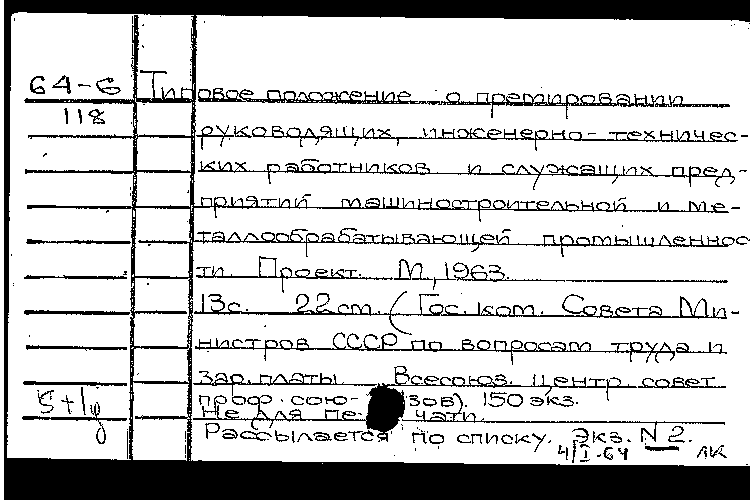 64-6 Типовое положение о премировании
118
руководящих, инженерно-техничес-
ких работников и служащих пред-
приятий машиностроительной и ме-
таллообрабатывающей промышленнос
ти. Проект. М, 1963.
13с. 22см. (Гос. ком. Совета Ми-
нистров СССР по вопросам труда и
зар. платы. Всесоюз. центр. совет
проф. сою- зов). 150 экз.
Не для пе- чати.
Рассылается по списку. Экз. N 2.
4/I-64 ЛК